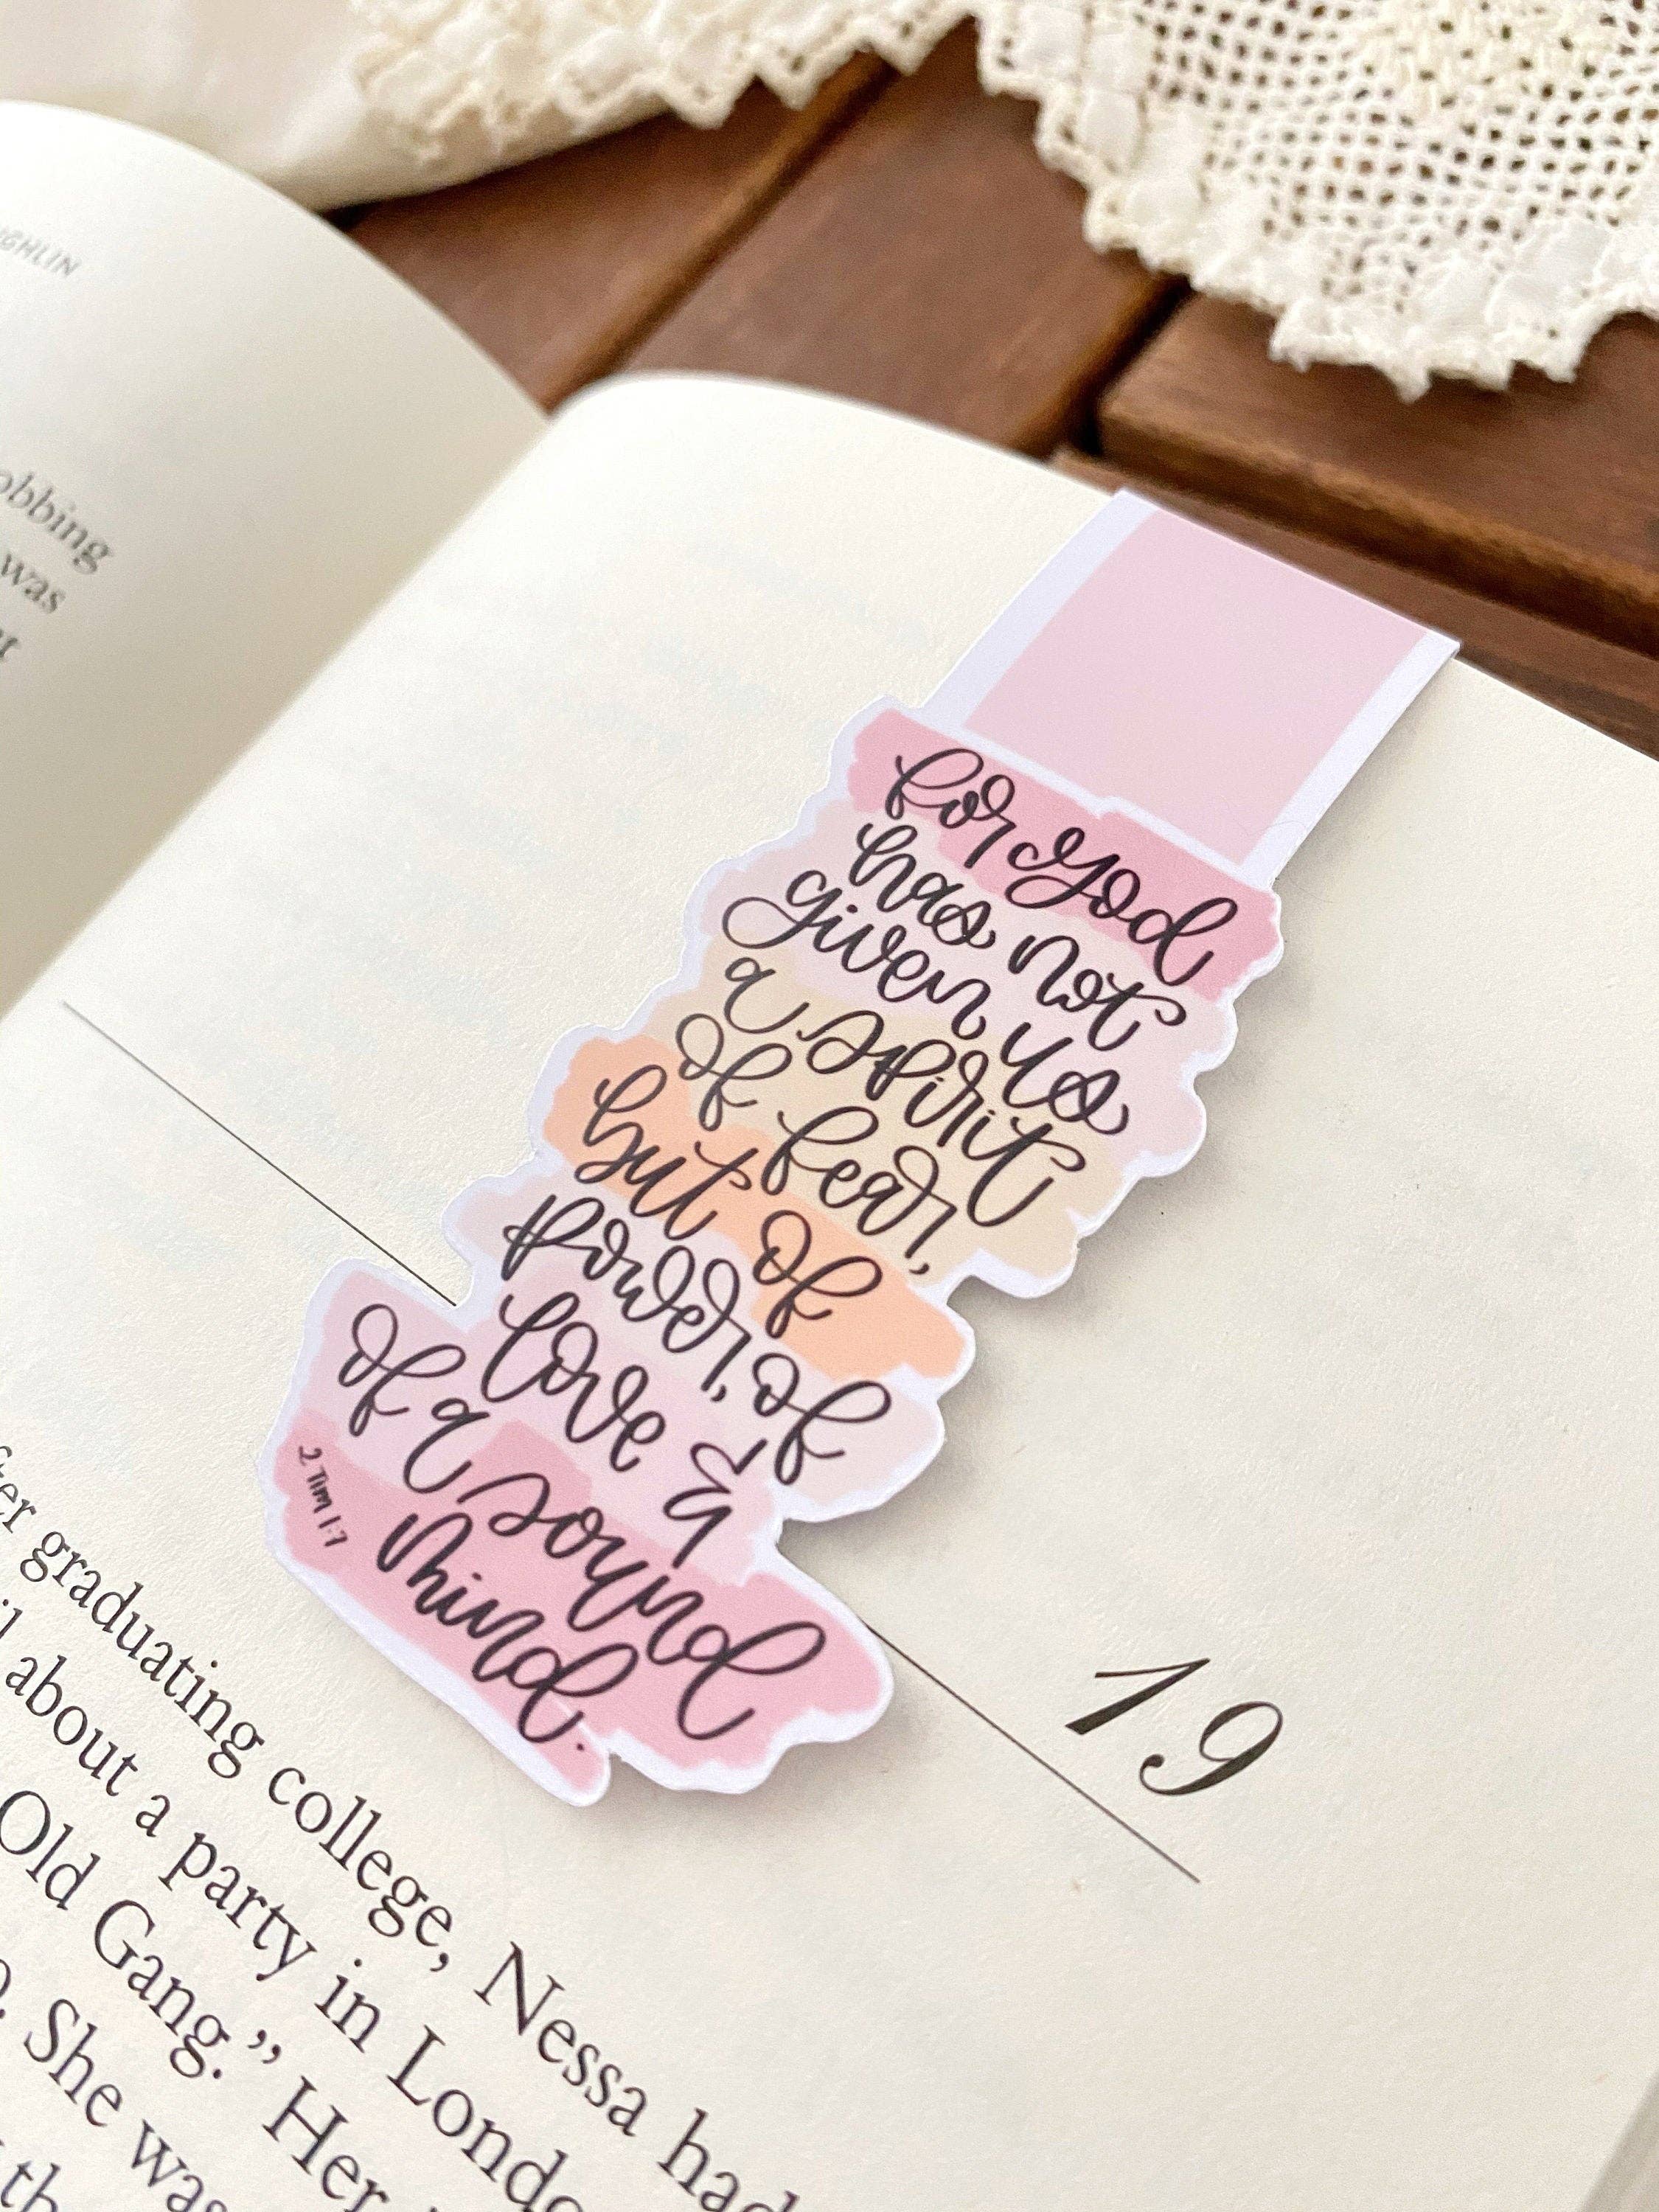 GHLIN
obbing
was
for God
has not
given us
a spirit
of fear,
but of
power, of
love &
of a sound
mind.
2 Tim 1:7
19
graduating college, Nessa had
about a party in
Old Gang.” Her
She was